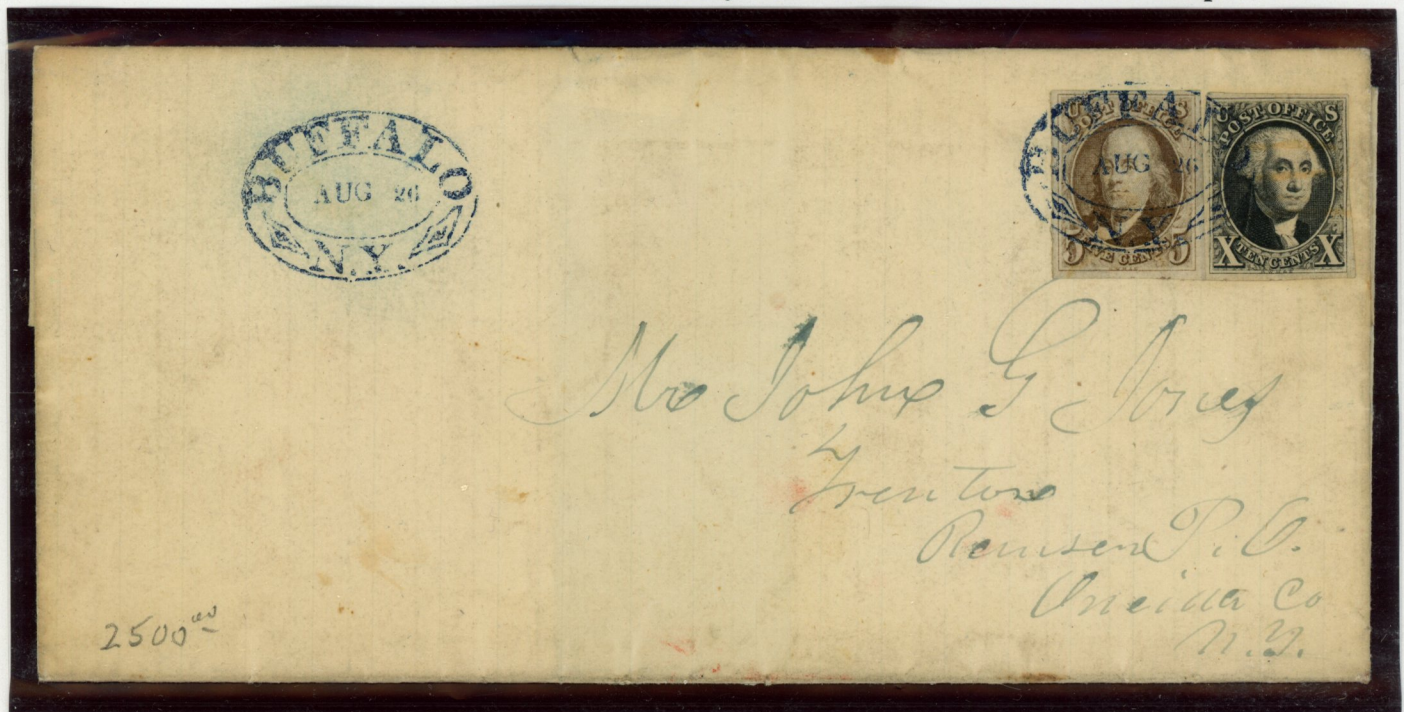 BUFFALO
AUG 26
N.Y.
BUFFAL
AUG 26
N.Y.
POST OFFICE
5 FIVE CENTS 5
U S
POST OFFICE
X TEN CENTS X
Mr John G. Jones
Trenton
Remsen P. O.
Oneida Co
N. Y.
2500.00